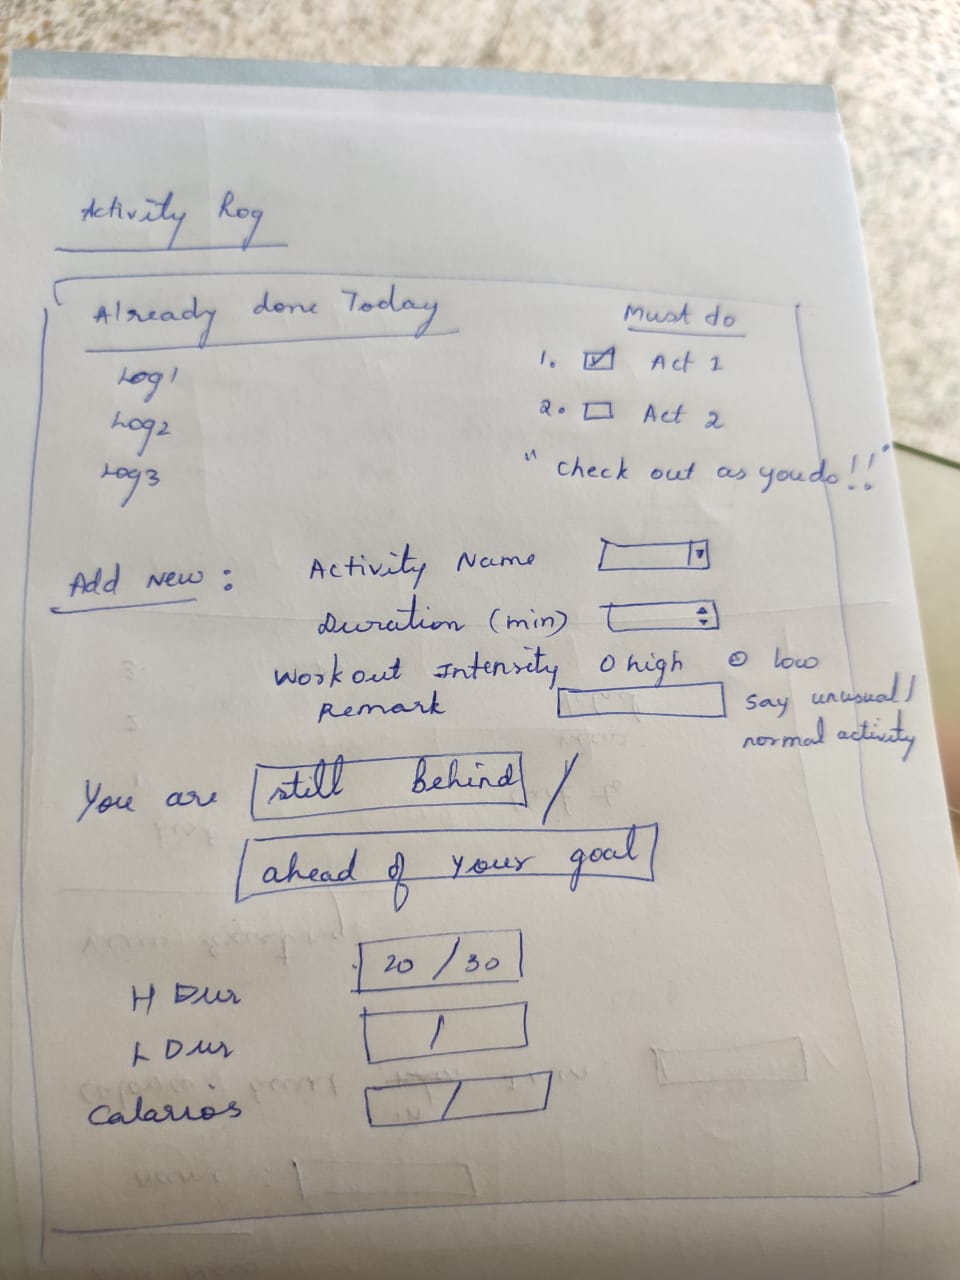 Activity Log
Already done Today
Must do
Log1
1. Act 1
Log2
2. Act 2
Log3
" Check out as you do!!"
Add New :
Activity Name
Duration (min)
Workout Intensity high low
Remark
say unusual/
normal activity
You are still behind /
ahead of your goal
H Dur 20 / 30
L Dur /
Calarios /